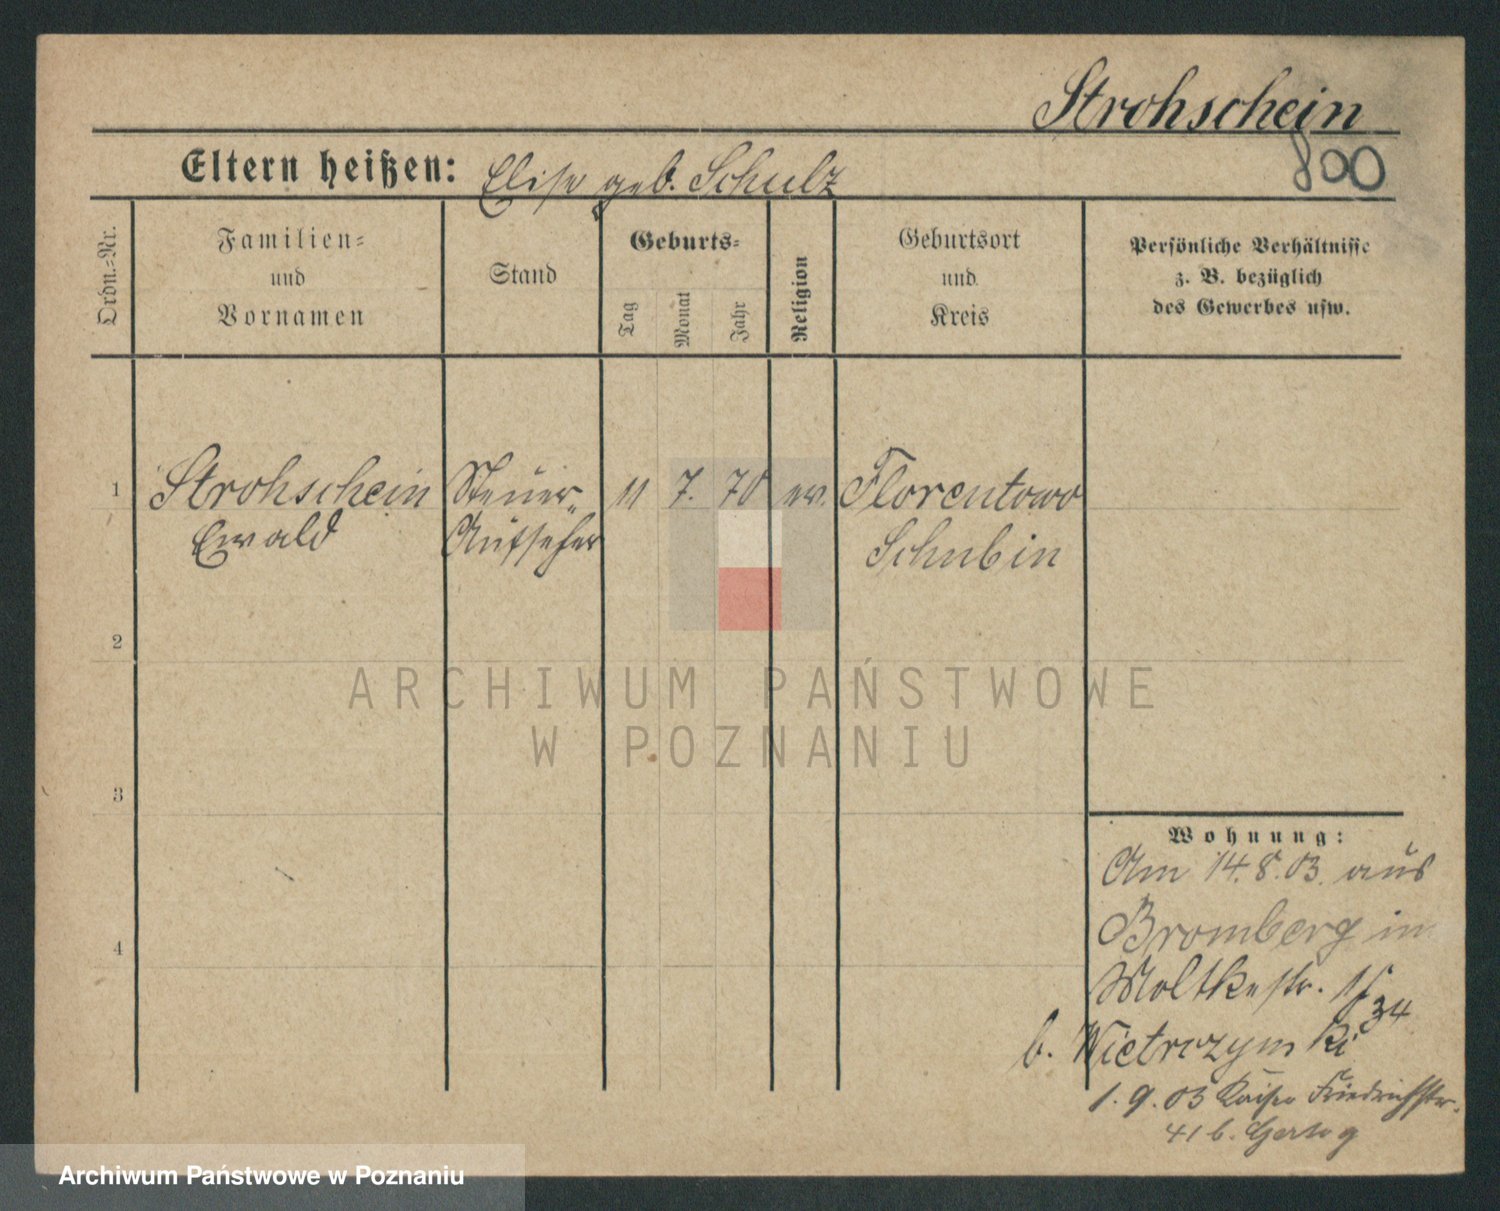 Strohschein
800
Eltern heißen: Elise geb. Schulz
Ordn.-Nr.
Familien-
und
Vornamen
Stand
Geburts-
Tag
Monat
Jahr
Religion
Geburtsort
und
Kreis
Persönliche Verhältnisse
z. B. bezüglich
des Gewerbes usw.
1 Strohschein Steuer- 11 7. 70 ev. Florentowo
Ewald Aufseher Schubin
2
3
4
ARCHIWUM PAŃSTWOWE
W POZNANIU
Wohnung:
Am 14.8.03. aus
Bromberg in
Moltkestr.
34
b.
1. 9. 03 Kaiser Friedrichstr.
41 b. Hertog
Archiwum Państwowe w Poznaniu